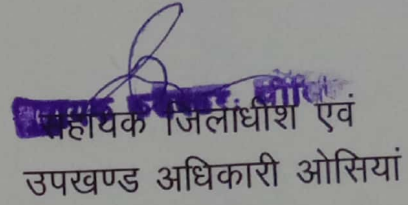 सहायक जिलाधीश एवं
उपखण्ड अधिकारी ओसियां